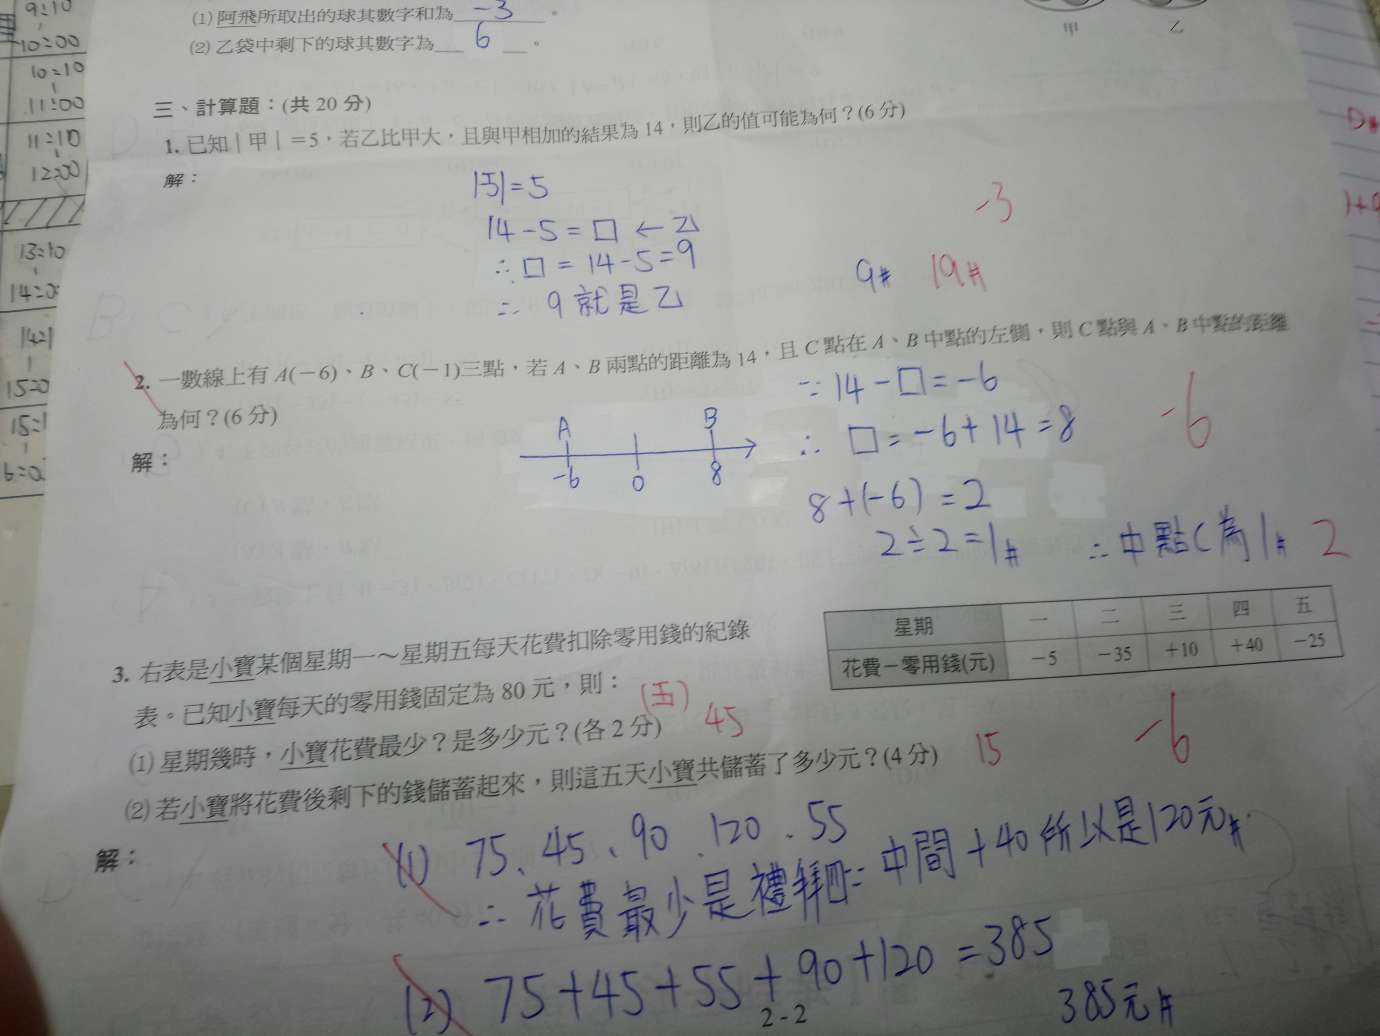 9:10
10:00
10:10
11:00
11:10
12:00
13:10
14:0
15:0
(1) 阿飛所取出的球其數字和為 -3 。
(2) 乙袋中剩下的球其數字為 6 。
甲 乙
三、計算題：(共 20 分)
1. 已知｜甲｜＝5，若乙比甲大，且與甲相加的結果為 14，則乙的值可能為何？(6 分)
解：
|5|=5
14-5=□←乙
∴□=14-5=9
∴ 9就是乙
9# 19#
-3
2. 一數線上有 A(－6)、B、C(－1)三點，若 A、B 兩點的距離為 14，且 C 點在 A、B 中點的左側，則 C 點與 A、B 中點的距離
為何？(6 分)
解：
A B
-6 0 8
∵14-□=-6
∴ □=-6+14=8
8+(-6)=2
2÷2=1#
∴中點C為1# 2
-6
3. 右表是小寶某個星期一～星期五每天花費扣除零用錢的紀錄
表。已知小寶每天的零用錢固定為 80 元，則：
星期 一 二 三 四 五
花費－零用錢(元) －5 －35 ＋10 ＋40 －25
(1) 星期幾時，小寶花費最少？是多少元？(各 2 分)
(五) 45
(2) 若小寶將花費後剩下的錢儲蓄起來，則這五天小寶共儲蓄了多少元？(4 分)
15
-6
解：
(1) 75、45、90、120、55
∴花費最少是禮拜四∵中間+40所以是120元#
(2) 75+45+55+90+120=385
385元#
2-2